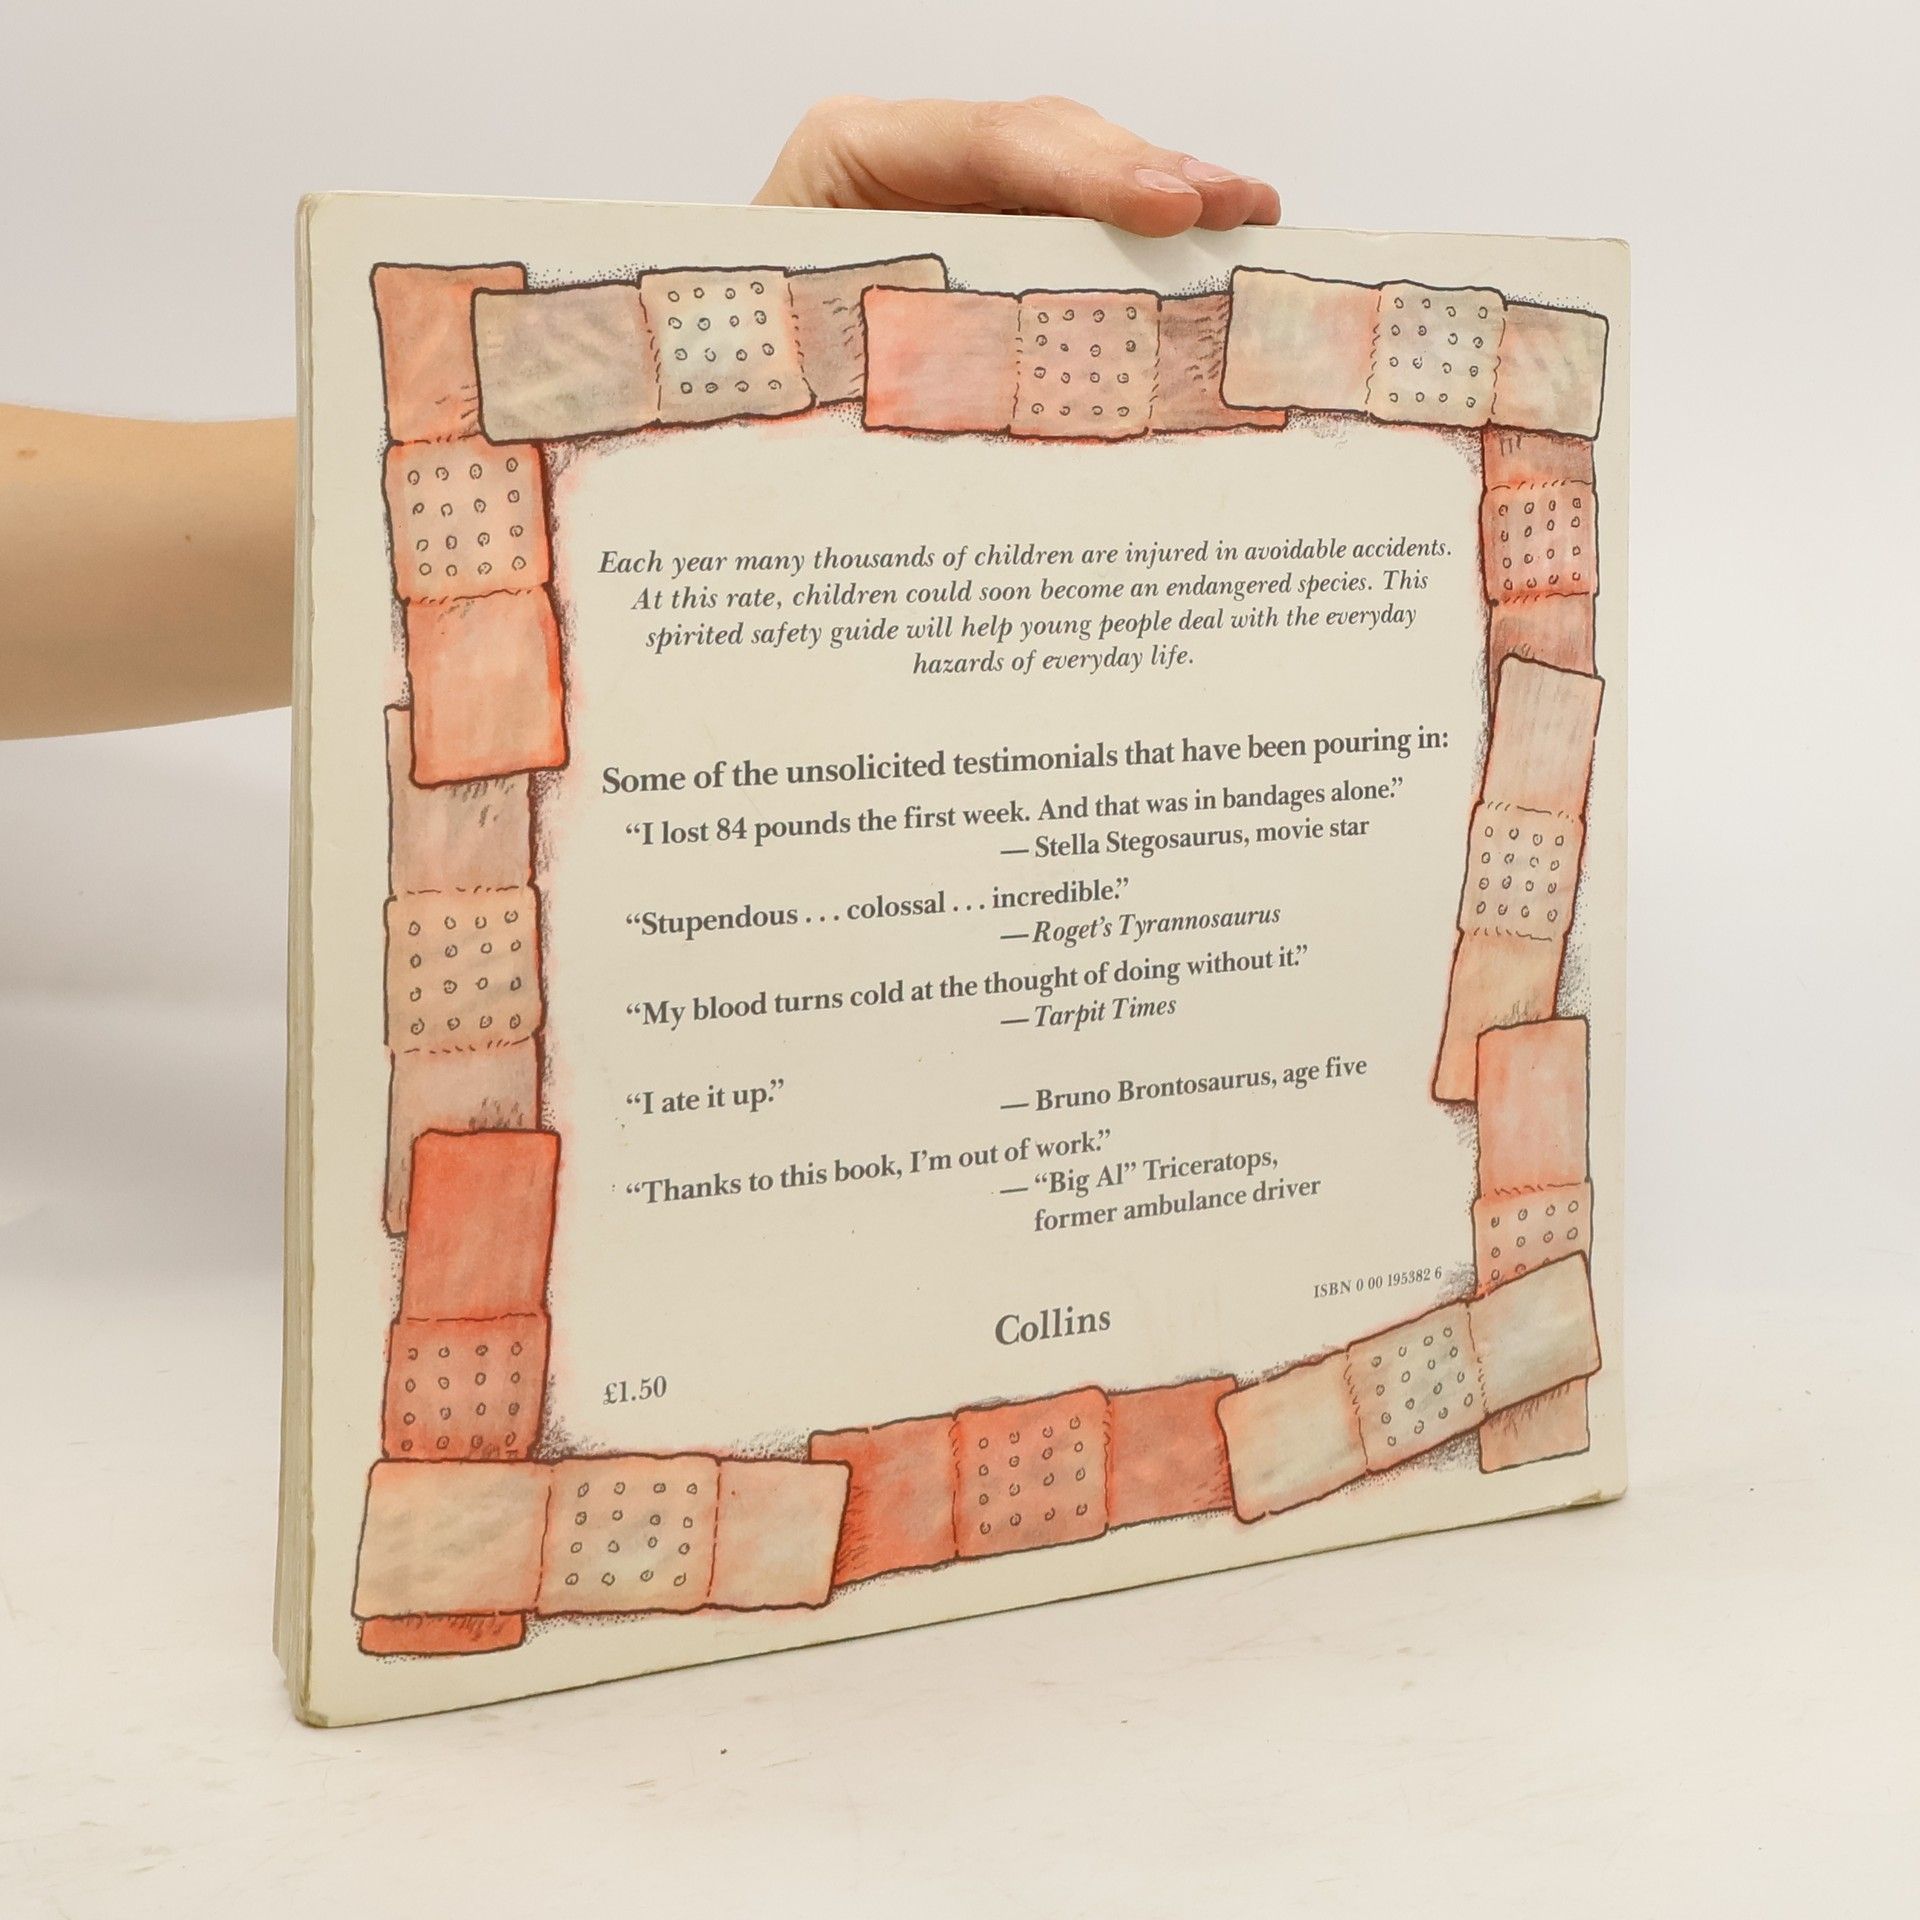 Each year many thousands of children are injured in avoidable accidents.
At this rate, children could soon become an endangered species. This
spirited safety guide will help young people deal with the everyday
hazards of everyday life.
Some of the unsolicited testimonials that have been pouring in:
“I lost 84 pounds the first week. And that was in bandages alone.”
— Stella Stegosaurus, movie star
“Stupendous . . . colossal . . . incredible.”
— Roget’s Tyrannosaurus
“My blood turns cold at the thought of doing without it.”
— Tarpit Times
“I ate it up.” — Bruno Brontosaurus, age five
“Thanks to this book, I’m out of work.”
— “Big Al” Triceratops,
former ambulance driver
ISBN 0 00 195382 6
Collins
£1.50